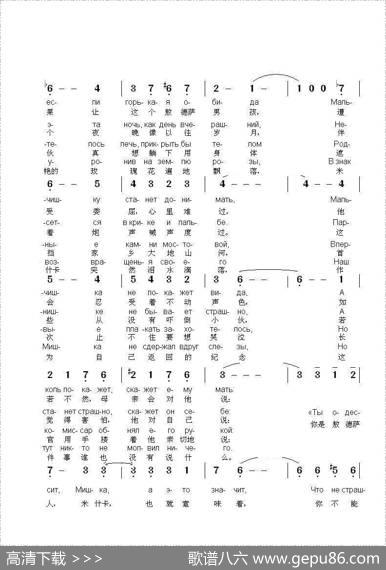 6 - - 4 | 3 7 #6 7 | 2 - 1 - | 1 0 0 7
ес- пи горь- ка- я о- би- да Маль-
果 让 这 个 敖 德萨 男 孩, 遭
э- та ночь, как день вче- раш- ний, Не-
个 夜 晚 像 以 往 岁 月, 伴
те- пось печь, при- крыть бы те- пом Род-
伙 真 想 躺 下 用 身 体 遮
у- ро- нив на зем- пю ро- зы, В знак
艳的 玫 瑰 花 遍 地 飘 落, 米
6 - - 5 | 4 3 2 3 | 4 - - - | 4 - -
чиш- ку ста- нет до- ни- мать, Маль-
受 委 屈, 心 里 难 过, 他
сет- ся в кри- ке и паль- бе. Пар-
着 炮 声 喊 声 度 过, 这
ны- е кам- ни мос- то- вой, Впер-
挡 家 乡 大 地 山 河, 首
воз- вра- щень- я сво- е- го Наш
什卡 突 然 泪 水 滴 落, 作
5 - - 4 | 5 4 3 2 | 3 6 - - | 6 - - 1
чиш- ка не по- ка- жет ви- да, А
会 忍 受 着 不 动 声 色, 如
ниш- ке не бы- ва- ет страш- но, А
些 从 没 有 吓 倒 小 伙, 若
вы- е ппа- кать за- хо- те- пось, Но
次 止 不 住 要 想 哭 泣, 长
Миш- ка не сдер- жал вдруг сле- зы, Но
为 自 己 返 回 的 纪 念 这
2 1 7 6 | #2 1 7 6 | 3 - - - | 3 3 1 2
коль по- ка- жет, ска- жет е- му мать:
若 不 然, 母 亲 会 对 他 说:
ста- нет страш- но, ска- жет он се- бе: «Ты о- дес-
觉 得 害 怕, 他 对 自 己 说: 你 是 敖 德萨
ко- мис- сар об- нял е- го ру- кой.
官 用 手 搂 着 他 亲 切地 说:
тут ник- то не мол- вил ни- че- го.
件 事 谁 也 没 有 说 什 么。
7 - 3 3 | 3 - 3 3 | 3 - 1 - | 6 6 #5 6
сит, Миш- ка, а э- то зна- чит, Что не страш-
人, 米 什卡, 也 就 意 味 着, 你 不 能
高清下载 >>>
歌谱八六 www.gepu86.com